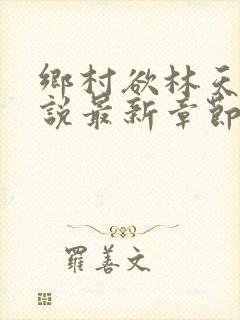 鄉村欲林天
說最新章節
羅善文